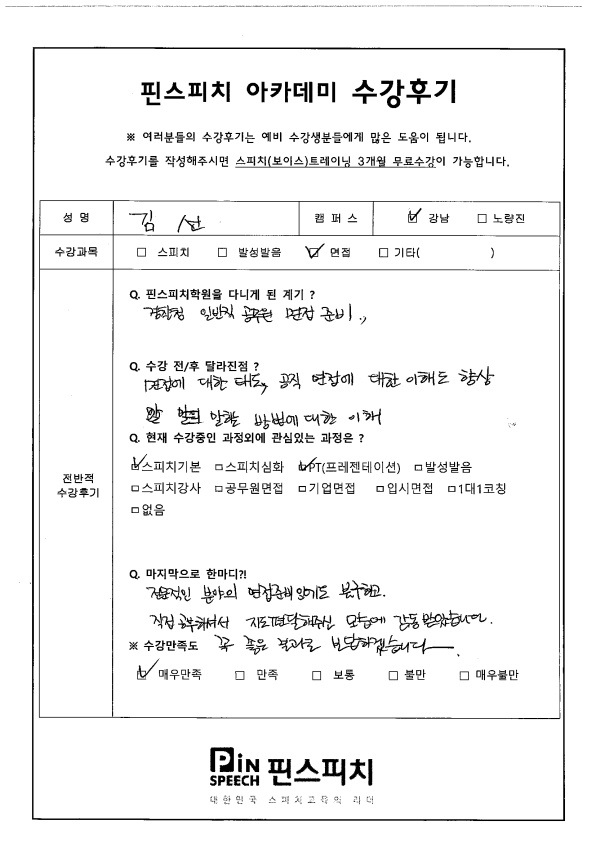 핀스피치 아카데미 수강후기
※ 여러분들의 수강후기는 예비 수강생분들에게 많은 도움이 됩니다.
수강후기를 작성해주시면 스피치(보이스)트레이닝 3개월 무료수강이 가능합니다.
성 명 김 캠 퍼 스 ☑ 강남 □ 노량진
수강과목 □ 스피치 □ 발성발음 ☑ 면접 □ 기타( )
전반적
수강후기
Q. 핀스피치학원을 다니게 된 계기 ?
경찰청 일반직 공무원 면접 준비.,
Q. 수강 전/후 달라진점 ?
면접에 대한 태도, 공직 면접에 대한 이해도 향상
말하는 방법에 대한 이해
Q. 현재 수강중인 과정외에 관심있는 과정은 ?
☑스피치기본 □스피치심화 ☑PT(프레젠테이션) □발성발음
□스피치강사 □공무원면접 □기업면접 □입시면접 □1대1코칭
□없음
Q. 마지막으로 한마디?!
전문적인 분야의 면접준비임에도 불구하고.
직접 공부하셔서 지도편달해주신 모습에 감동받았습니다.
※ 수강만족도 꼭 좋은 결과로 보답하겠습니다
☑ 매우만족 □ 만족 □ 보통 □ 불만 □ 매우불만
PiN
SPEECH 핀스피치
대한민국 스피치교육의 리더